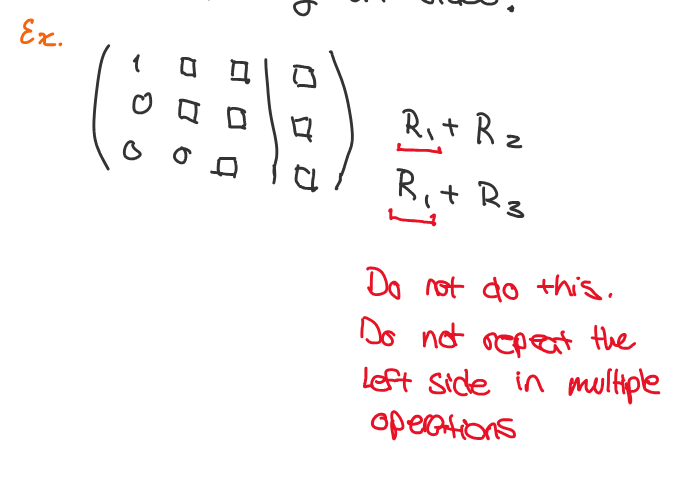 side.
Ex.
1 □ □ | □
0 □ □ | □
0 0 □ | □
R₁ + R₂
R₁ + R₃
Do not do this.
Do not repeat the
left side in multiple
operations